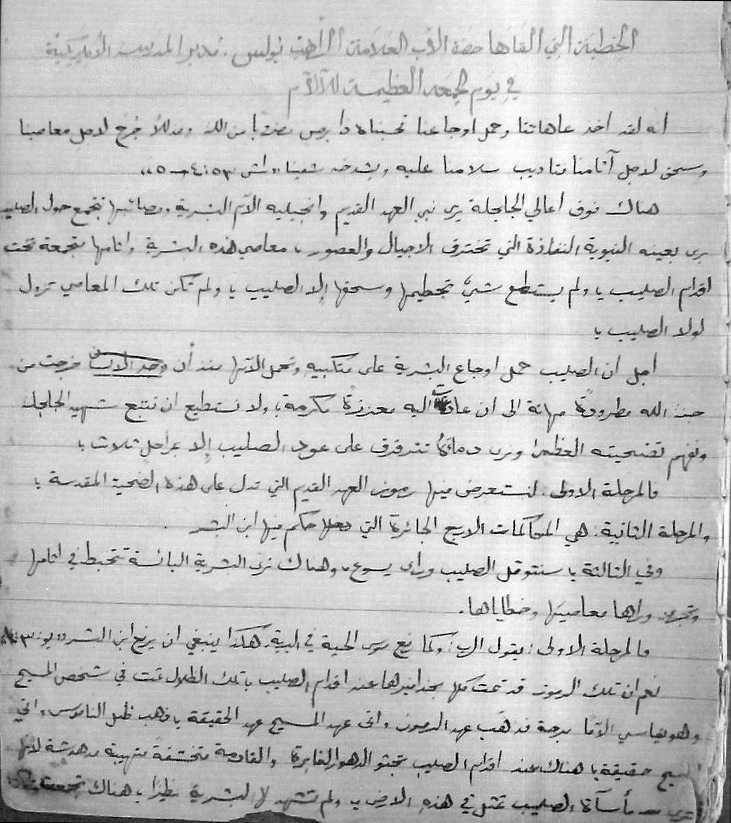 الخطبة التي القاها حضرة الأب العلامة الراهب بولس . مدير المدرسة الأمريكية
في يوم الجمعة العظيمة للآلام
انه لقد اخذ عاهاتنا وحمل اوجاعنا فحسبناه ذا برص مضروبا من الله ومذللا جرح لاجل معاصينا
وسحق لاجل آثامنا فتاديب سلامنا عليه وبشدخه شفينا "اش ٥٣ : ٤-٥"
هناك فوق اعالي الجلجلة يرى نبي العهد القديم وانجيليه آلام البشرية ومصائبها تتجمع حول الصليب
يرى بعينه النبوية النفاذة التي تخترق الاجيال والعصور ، معاصي هذه البشرية واثامها متجمعة تحت
اقدام الصليب ، ولم يستطع شيء تحطيمها وسحقها إلا الصليب ، ولم تكن تلك المعاصي تزول
لولا الصليب ،
اجل ان الصليب حمل اوجاع البشرية على منكبيه وتحمل آلامها منذ أن وجد الانسان خرجت من
جنة الله مطرودة مهانة الى ان عادت اليه معززة مكرمة ، ولا نستطيع ان نتتبع شهيد الجلجلة
ونفهم تضحيته العظمى ونرى دمائه تترقرق على عود الصليب إلا بمراحل ثلاث ،
فالمرحلة الاولى . نستعرض فيها رموز العهد القديم التي تدل على هذه الضحية المقدسة ،
والمرحلة الثانية . هي المحاكمات الاربع الجائرة التي حكم فيها ابن البشر .
وفي الثالثة ، سنتوقل الصليب ورأى يسوع ، وهناك نرى البشرية البائسة تتخبط في اثامها
وتجر وراها معاصيها وخطاياها .
فالمرحلة الاولى : يقول الرب : وكما رفع موسى الحية في البرية . هكذا ينبغي ان يرفع ابن البشر "يو ٣
نعم ان تلك الرموز قد تمت كلها بحذافيرها عند اقدام الصليب ، تلك الظلال تمت في شخص المسيح
وهو يقاسي الآلام مرحبة قد ذهب عهد الرموز واتى عهد المسيح عهد الحقيقة ، ذهب ظل الناموس واتى
المسيح حقيقة ، هناك عند اقدام الصليب تجثو الدهور الغابرة والقادمة متخشعة متهيبة مدهشة لانها
ترى مأساة الصليب تمثل في هذه الارض ، ولم تشهد لا البشرية نظيرا ، هناك تجمعت